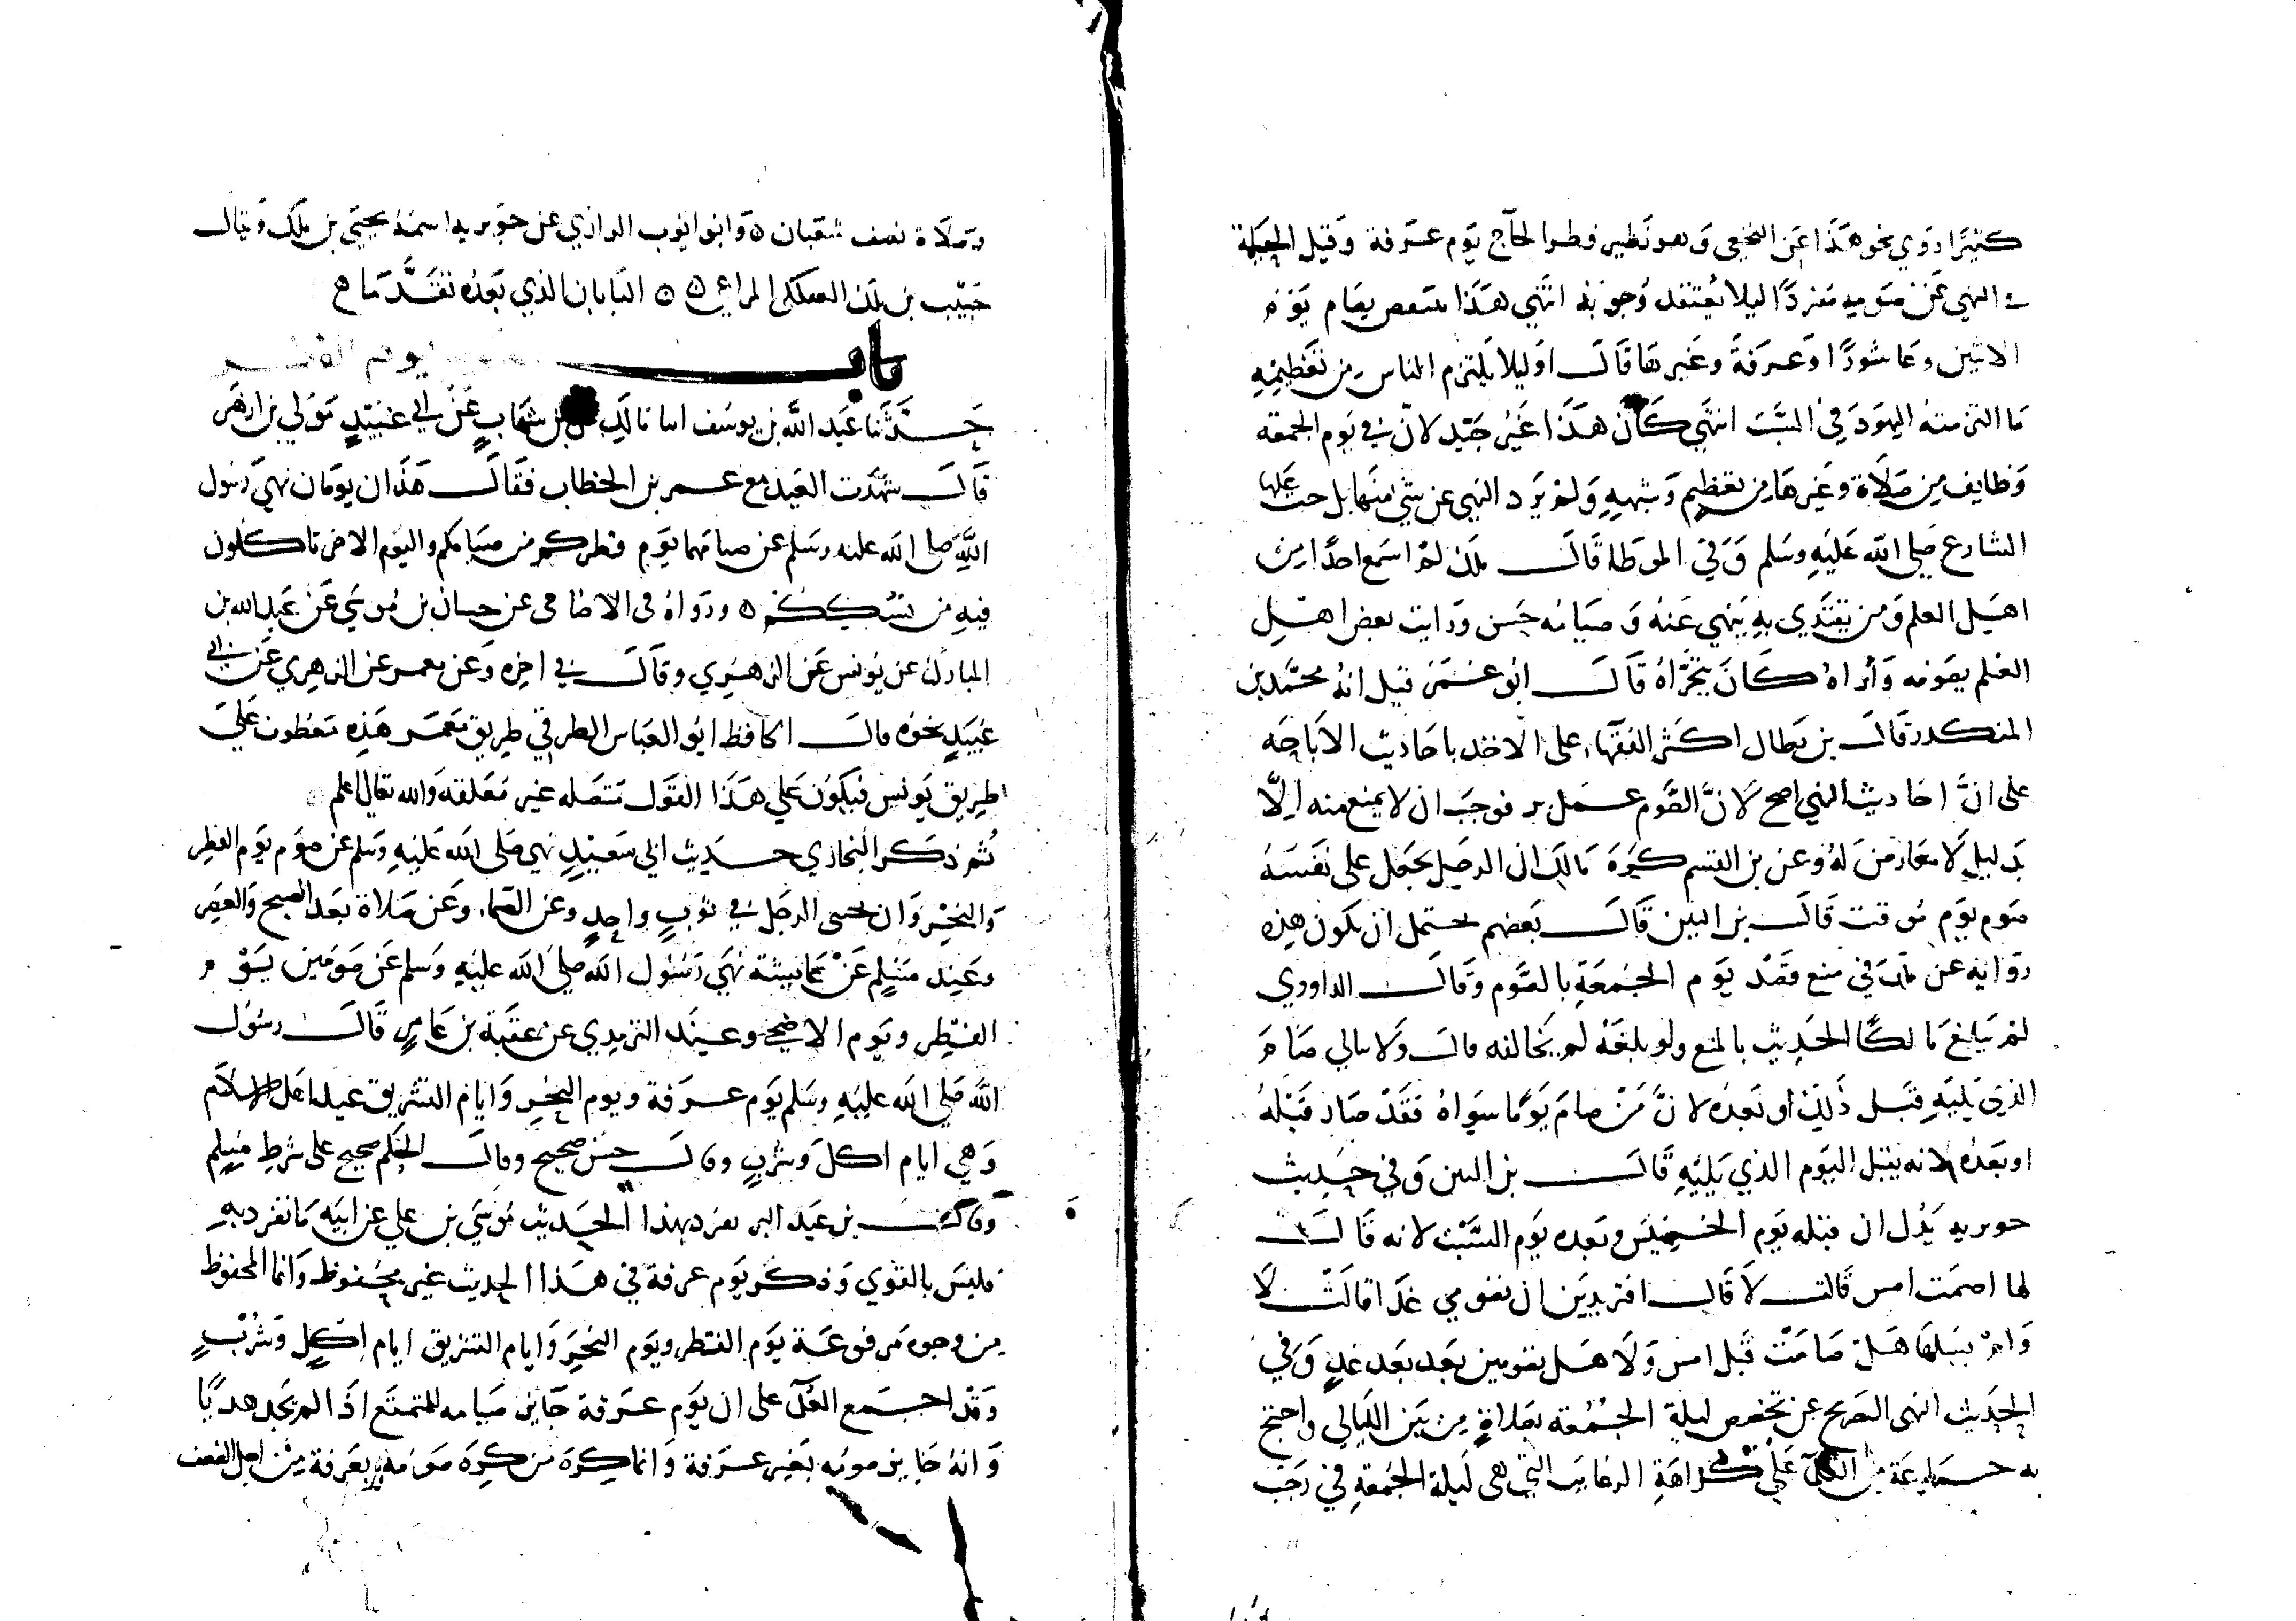 كثيرا روي نحو هذا عن النخعي وهو نظير فطر الحاج يوم عرفة وقيل الحكمة
في النهي عن صومه مفردا ليلا يعتقد وجوبه انتهى هذا منتقض بصيام يوم
الاثنين وعاشورا وعرفة وغيرها قال او ليلا يلتزم الناس من تعظيمه
ما التزمته اليهود في السبت انتهى كان هذا غير جيد لان في يوم الجمعة
وظايف من صلاة وغيرها من تعظيم وشبهه ولم يرد النهي عن شي منها بل حث عليها
الشارع صلى الله عليه وسلم وفي الموطا قال ملك لم اسمع احدا من
اهل العلم ومن يقتدي به ينهي عنه وصيامه حسن ورايت بعض اهل
العلم يصومه وأراه كان يتحراه قال ابو عمر قيل انه محمد بن
المنكدر قال بن بطال اكثر الفقها على الاخذ باحاديث الاباحه
على ان احاديث النهي اصح لان الصوم عمل بر فوجب ان لا يمنع منه الا
بدليل لا معارض له وعن بن القسم كره مالك ان الرجل يجعل على نفسه
صوم يوم موقت قال بن التين قال بعضهم يحتمل ان تكون هذه
روايه عن ملك في منع قصد يوم الجمعة بالصوم وقال الداودي
لم يبلغ مالكا الحديث بالمنع ولو بلغه لم يخالفه قال ولا يبالي صام
الذي يليه قبل ذلك او بعده لان من صام يوما سواه فقد صار قبله
او بعده لانه يقبل اليوم الذي يليه قال بن التين وفي حديث
جويريه يدل ان قبله يوم الخميس وبعده يوم السبت لانه قال
لها اصمت امس قالت لا قال افتريدين ان تصومي غدا قالت لا
ولم يسلها هل صامت قبل امس ولا هل تصومين بعد بعد غد وفي
الحديث النهى الصريح عن تخصيص ليلة الجمعة بصلاة من بين الليالي واحتج
به جماعة من العلما على كراهة الرغايب التي هي ليلة الجمعة في رجب
وصلاة نصف شعبان ه وابو ايوب الرازي عن جويريه اسمه يحيى بن ملك ويقال
حبيب بن ملك العتكي المراغي ه ه البابان الذي بعده تقدما ح
باب صوم يوم الفطر
حدثنا عبد الله بن يوسف انا مالك عن بن شهاب عن ابي عبيد مولي بن ازهر
قال شهدت العيد مع عمر بن الخطاب فقال هذان يومان نهي رسول
الله صلى الله عليه وسلم عن صيامهما يوم فطركم من صيامكم واليوم الاخر تاكلون
فيه من نسككم ه ورواه في الاضاحى عن حبان بن موسي عن عبد الله بن
المبارك عن يونس عن الزهري وقال في اخره وعن معمر عن الزهري عن ابي
عبيد نحوه قال الحافظ ابو العباس الطرقي طريق معمر هذه معطوف علي
طريق يونس فيكون علي هذا القول متصله غير معلقة والله تعالى اعلم
ثم ذكر البخاري حديث ابي سعيد نهي صلى الله عليه وسلم عن صوم يوم الفطر
والنحر وان يحتبى الرجل في ثوب واحد وعن الصما وعن صلاة بعد الصبح والعصر
وعند مسلم عن عايشة نهي رسول الله صلى الله عليه وسلم عن صومين يوم
الفطر ويوم الاضحى وعند الترمذي عن عقبة بن عامر قال رسول
الله صلي الله عليه وسلم يوم عرفة ويوم النحر وايام التشريق عيد اهل الاسلام
وهي ايام اكل وشرب وقال حسن صحيح وقال الحكم صحيح على شرط مسلم
وقال بن عبد البر تفرد بهذا الحديث موسي بن علي عن ابيه ما تفرد به
فليس بالقوي وذكر يوم عرفة في هذا الحديث غير محفوظ وانما المحفوظ
من وجوه مرفوعة يوم الفطر ويوم النحر وايام التشريق ايام اكل وشرب
وقد اجمع العلما على ان يوم عرفة جايز صيامه للمتمتع اذا لم يجد هديا
وانه جايز صومه بغير عرفة وانما كره من كره صومه بعرفة من اجل الضعف